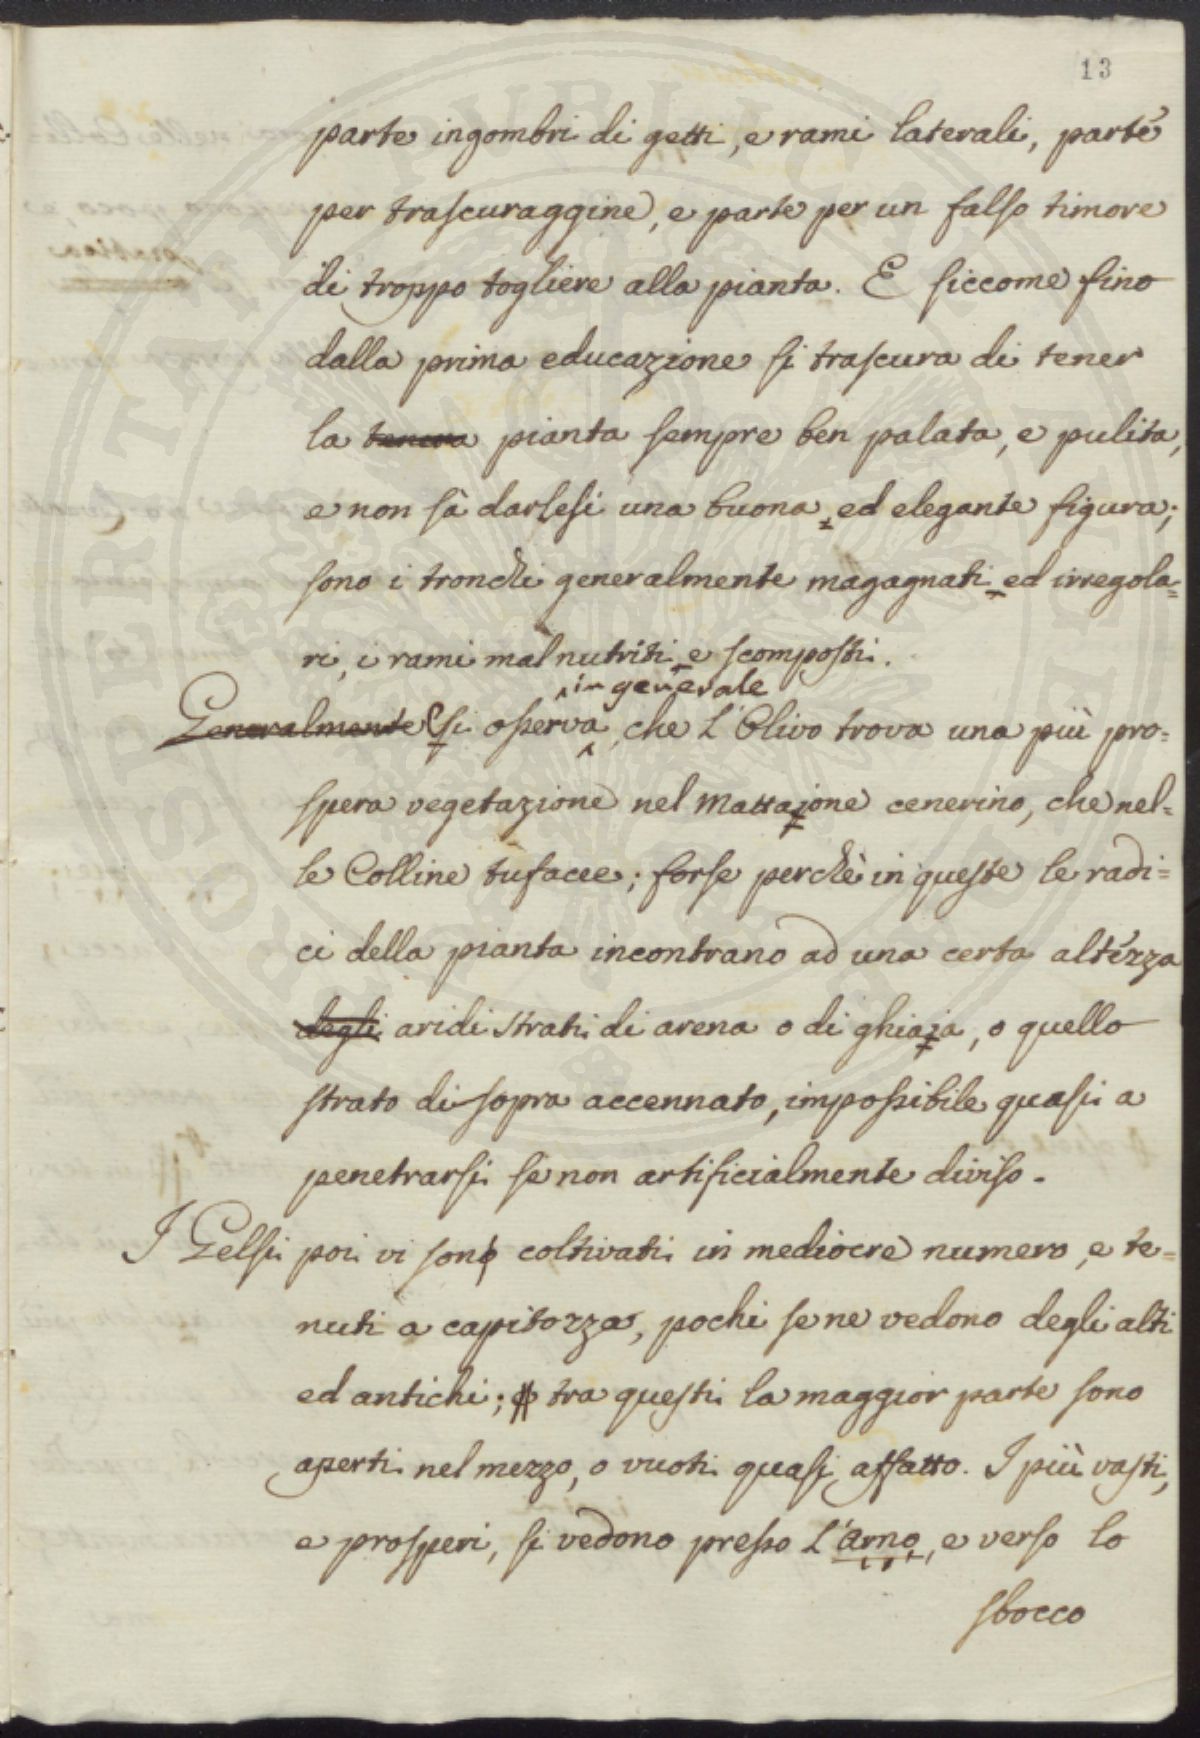 13
parte ingombri di getti, e rami laterali, parte
per trascuraggine, e parte per un falso timore
di troppo togliere alla pianta. E siccome fino
dalla prima educazione si trascura di tener
la tenera pianta sempre ben palata, e pulita,
e non sà darlesi una buona, ed elegante figura;
sono i tronchi generalmente magagnati ed irregola=
ri, i rami mal nutriti e scomposti.
in generale
Generalmente si osserva, che l'Olivo trova una più pro=
spera vegetazione nel mattajone cenerino, che nel=
le Colline tufacee; forse perchè in queste le radi=
ci della pianta incontrano ad una certa altezza
degli aridi strati di arena o di ghiaja, o quello
strato di sopra accennato, impossibile quasi a
penetrarsi se non artificialmente diviso.
I Gelsi poi vi sono coltivati in mediocre numero, e te=
nuti a capitozza, pochi se ne vedono degli alti
ed antichi; tra questi la maggior parte sono
aperti nel mezzo, o vuoti quasi affatto. I più vasti,
e prosperi, si vedono presso l'Arno, e verso lo
sbocco
PROSPERITATI PUBLICAE